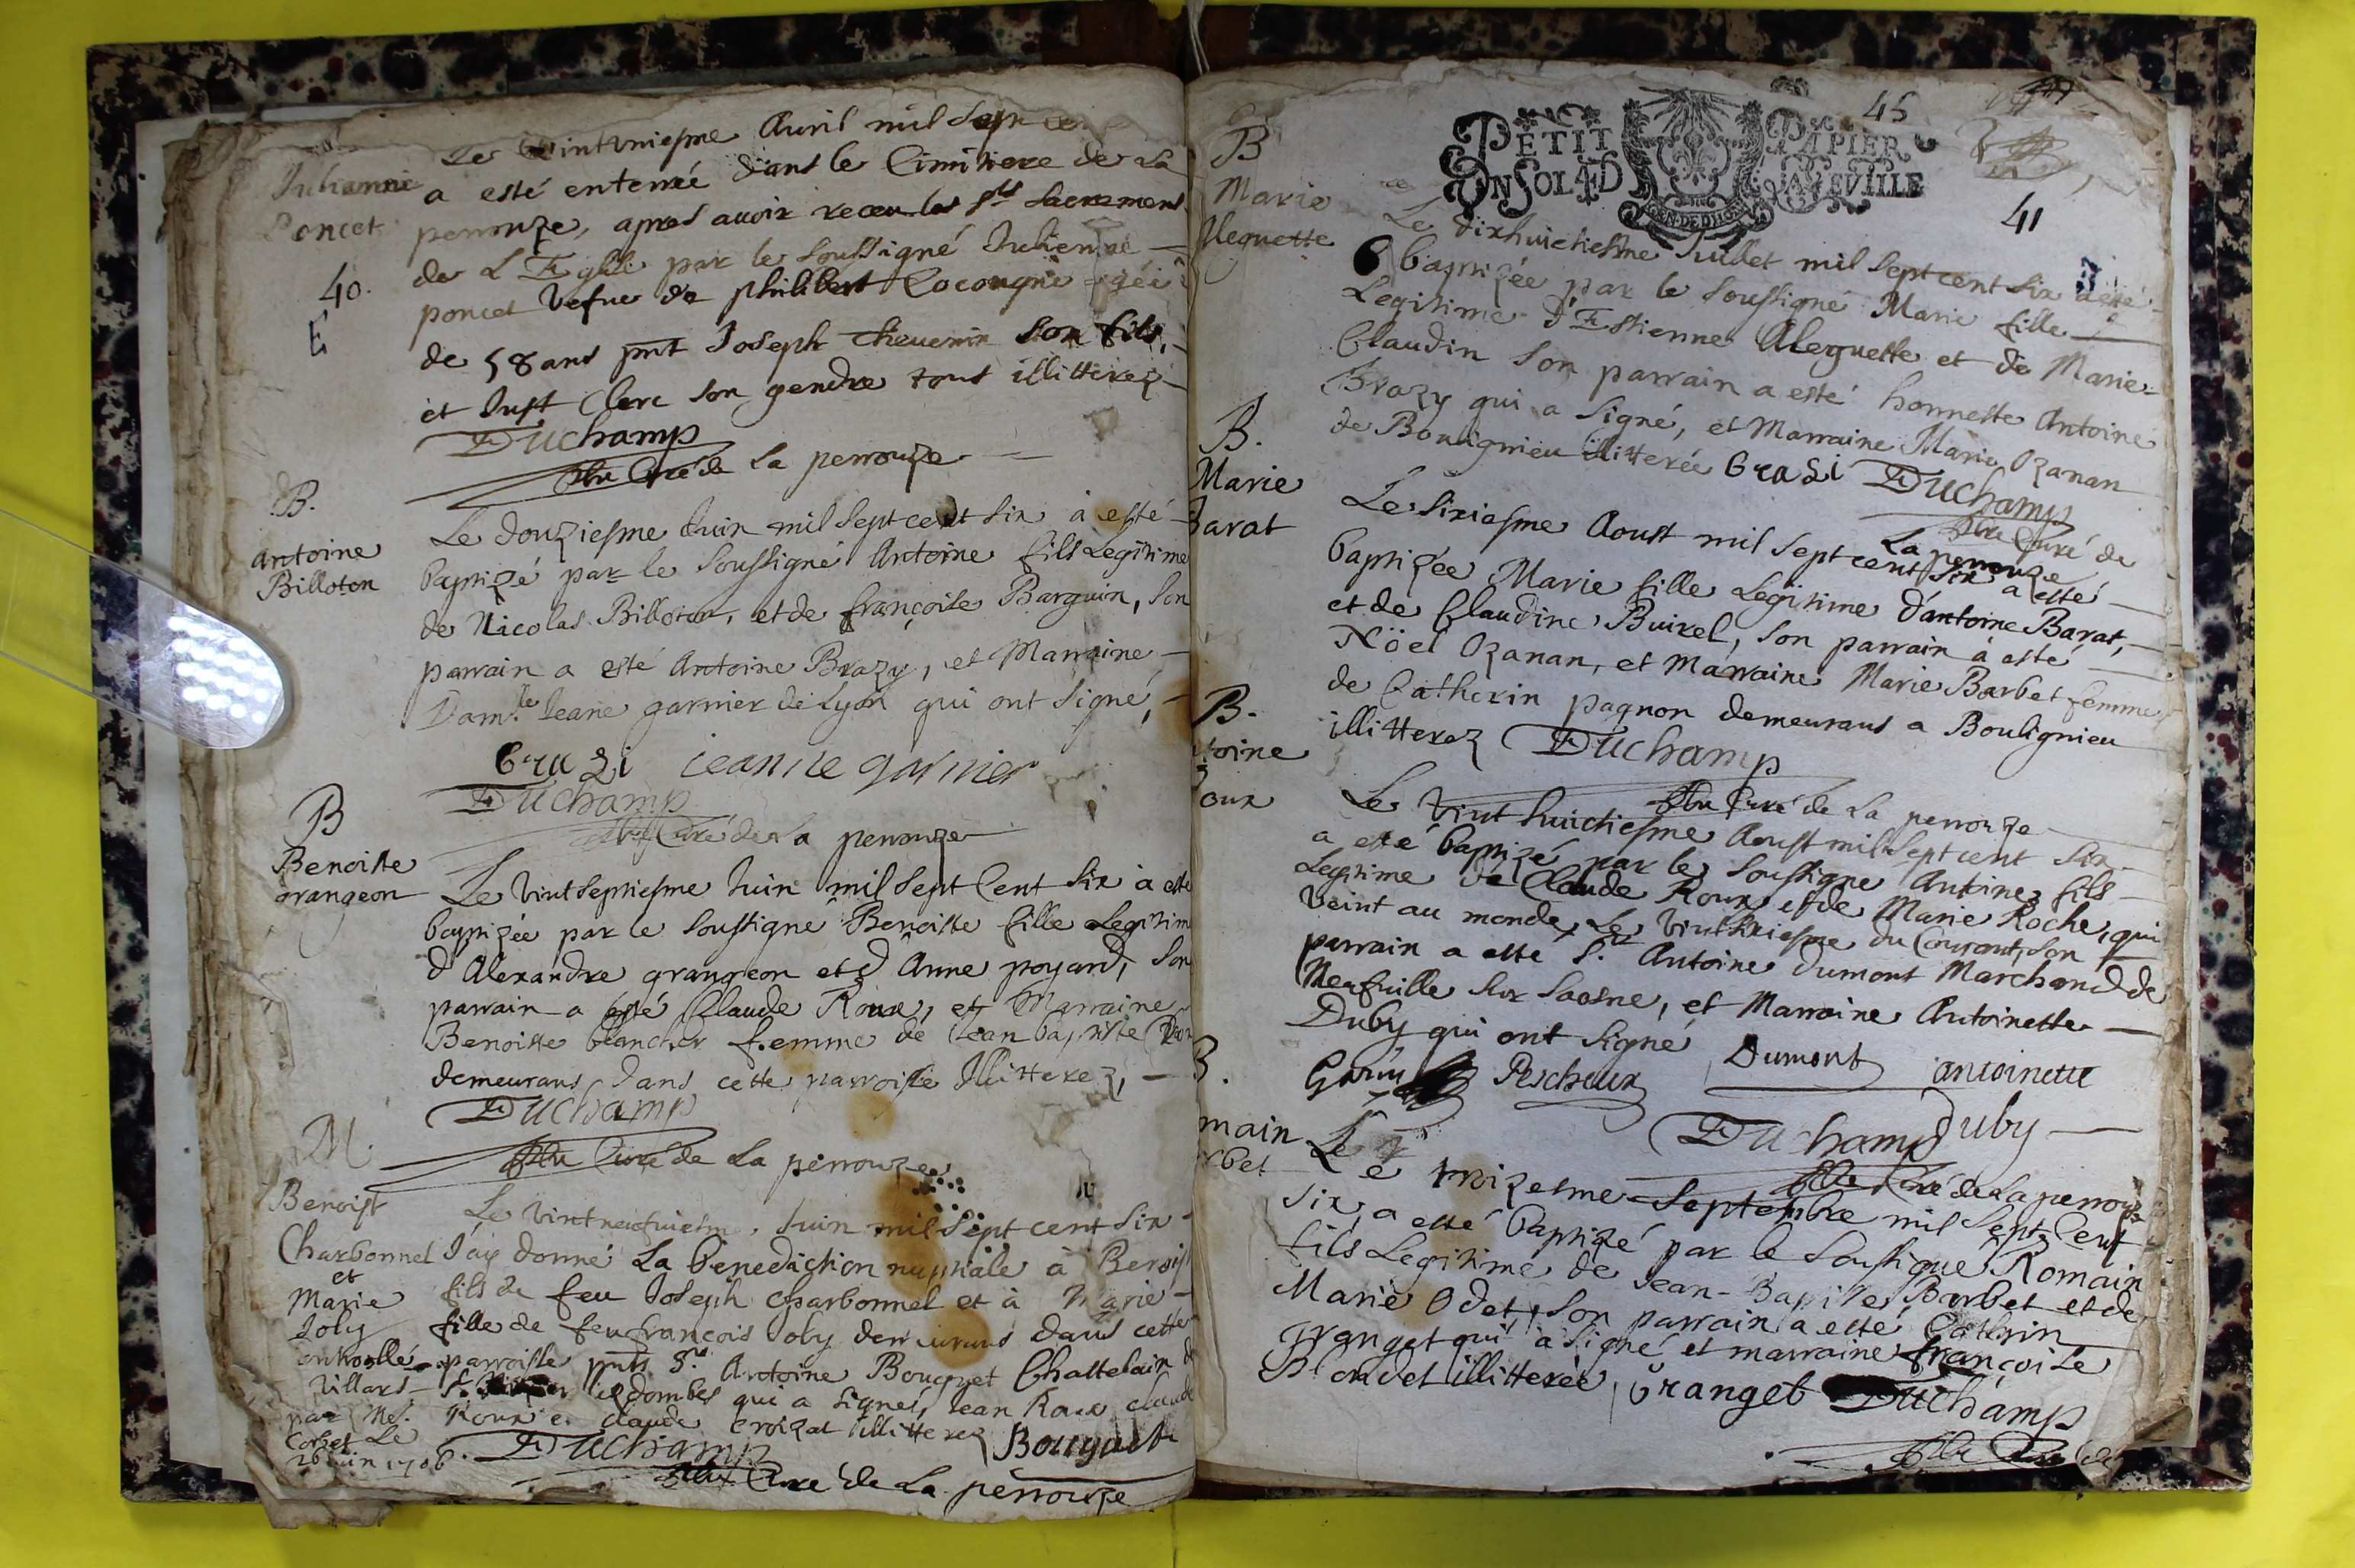 Le vintuniesme Auril mil sept cen
Julienne
Poncet
a esté enterrée dans le Cimitiere de La
perouze, apres auoir receu les sts sacremens
de L'Eglise par le soussigné Julienne
40.
poncet vefue de philibert Cocongne agée
E
de 58 ans pnt Joseph Theuenin son fils,
et Just Clerc son gendre tous illitterez
F Duchamp
ptre Curé de La perrouze
B.
Antoine
Billoton
Le douziesme Juin mil sept cent six a esté
baptizé par le soussigné Antoine fils Legitime
de Nicolas Billoton, et de françoise Barguin, son
parrain a esté Antoine Brazy, et Marraine
Dam.lle Jeane garnier de Lyon qui ont signé,
brazi jeanne garnier
F Duchamp
ptre Curé de La perrouze
B
Benoiste
grangeon
Le vintseptiesme Juin mil sept Cent six a esté
baptizée par le soussigné Benoiste fille Legitim
d'Alexandre grangeon et d'Anne poyard, son
parrain a esté Claude Roux, et Marraine
Benoiste blanchet femme de Jean baptiste
demeurans dans cette parroisse Illitterez,
F Duchamp
ptre Curé de La perrouze
M.
Benoist
Charbonnel
et
Marie
Joly
controllé
villars
par Me.
Corbet Le
26 Juin 1706.
Le vintneufuiesme Juin mil sept cent six
J'ay donné La benediction nuptiale à Benoist
fils de feu Joseph Charbonnel et à Marie
fille de feu françois Joly demeurans dans cette
parroisse pnts Sr. Antoine Bouquet Chattelain de
St. lez dombes qui a signé, Jean Roux claude
Roux et claude Croizat illitterez Bouquet
F Duchamp
ptre Curé de La perrouze
45
PETIT PAPIER
UN SOL 4 D LA FEUILLE
GEN. DE DIION
41
B
Marie
Aleguette
Le dixhuictiesme Juillet mil sept cent six a esté
baptizée par le soussigné Marie fille
Legitime d'Estienne Aleguette et de Marie
Claudin son parrain a esté honneste Antoine
Brazy qui a signé, et Marraine Marie Ozanan
de Bouligneu illitterée brazi F Duchamp
ptre Curé de
La perrouze
B.
Marie
Barat
Le sixiesme Aoust mil sept cent six a esté
baptizée Marie fille Legitime d'antoine Barat,
et de Claudine Buirel, son parrain a esté
Nöel Ozanan, et Marraine Marie Barbet femme
de Catherin pagnon demeurans a Boulignieu
illitterez F Duchamp
ptre Curé de La perrouze
B.
toine
oux
Le vint huictiesme Aoust mil sept cent six
a esté baptizé par le soussigné Antoine fils
Legitime de Claude Roux et de Marie Roche, qui
veint au monde, Le vint du Courant, son
parrain a esté Sr. Antoine Dumont Marchand de
Neufuille sur saosne, et Marraine Antoinette
Duby qui ont signé
Pescheux Dumont antoinette
Duby
F Duchamp
ptre Curé de La perrouze
B.
main
rbet
Le treizesme Septembre mil sept Cent
six, a esté baptizé par le soussigné Romain
fils Legitime de Jean-Baptiste Barbet et de
Marie Odet, son parrain a esté Cathrin
Granget qui a signé et marraine françoise
Blondet illitterée, Granget F Duchamp
ptre Curé de